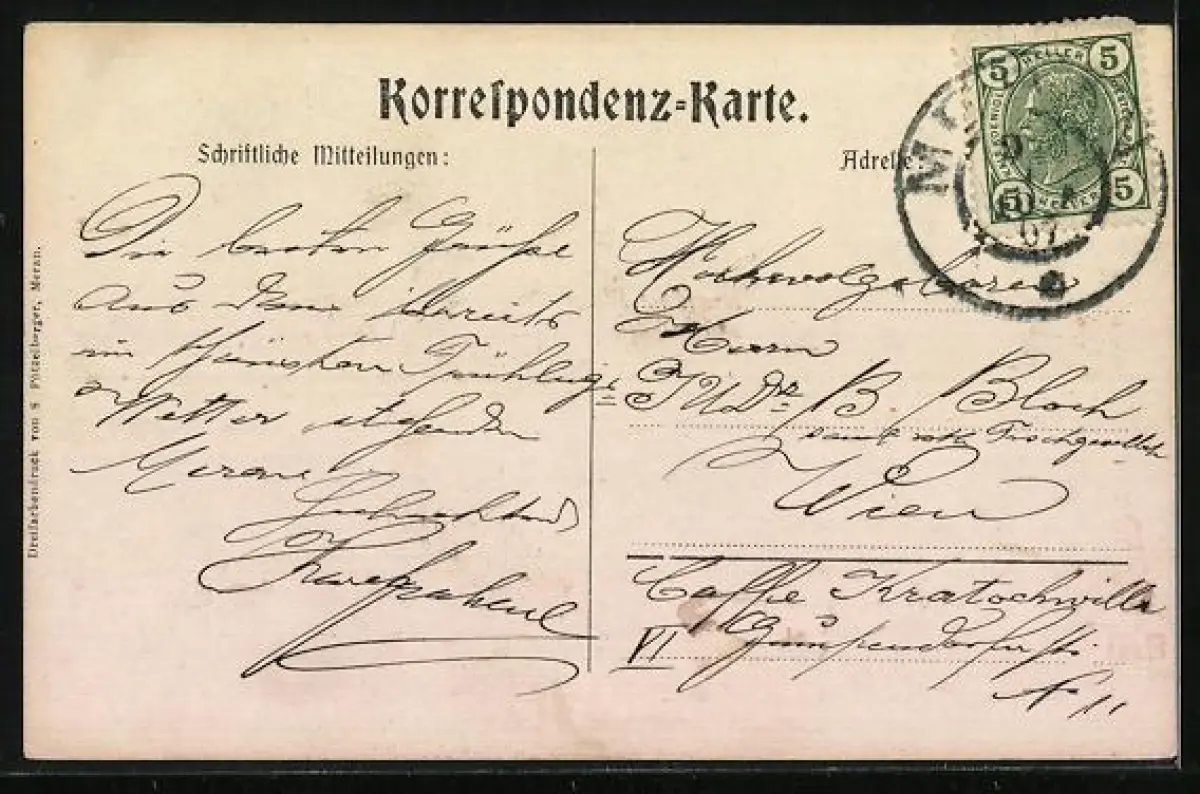 Korrespondenz-Karte.
Schriftliche Mitteilungen:
Adresse:
Die besten Grüße
aus dem bereits
im schönsten Frühlings=
Wetter stehenden
Meran
Hochwolgeboren
Herrn
JUDr B. Bloch
samt Tischgesellsch
Wien
Caffe Kratochwilla
VI Gumpendorferstr.
N 11
Dreifarbendruck von S. Pötzelberger, Meran.
5 HELLER 5
5 HELLER 5
07